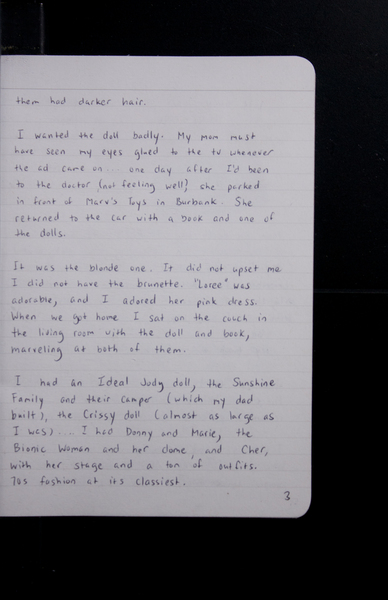 them had darker hair.
I wanted the doll badly. My mom must
have seen my eyes glued to the tv whenever
the ad came on... one day after I'd been
to the doctor (not feeling well) she parked
in front of Marv's Toys in Burbank. She
returned to the car with a book and one of
the dolls.
It was the blonde one. It did not upset me
I did not have the brunette. "Loree" was
adorable, and I adored her pink dress.
When we got home I sat on the couch in
the living room with the doll and book,
marveling at both of them.
I had an Ideal Judy doll, the Sunshine
Family and their camper (which my dad
built), the Crissy doll (almost as large as
I was).... I had Donny and Marie, the
Bionic Woman and her dome, and Cher,
with her stage and a ton of outfits.
70s fashion at its classiest.
3